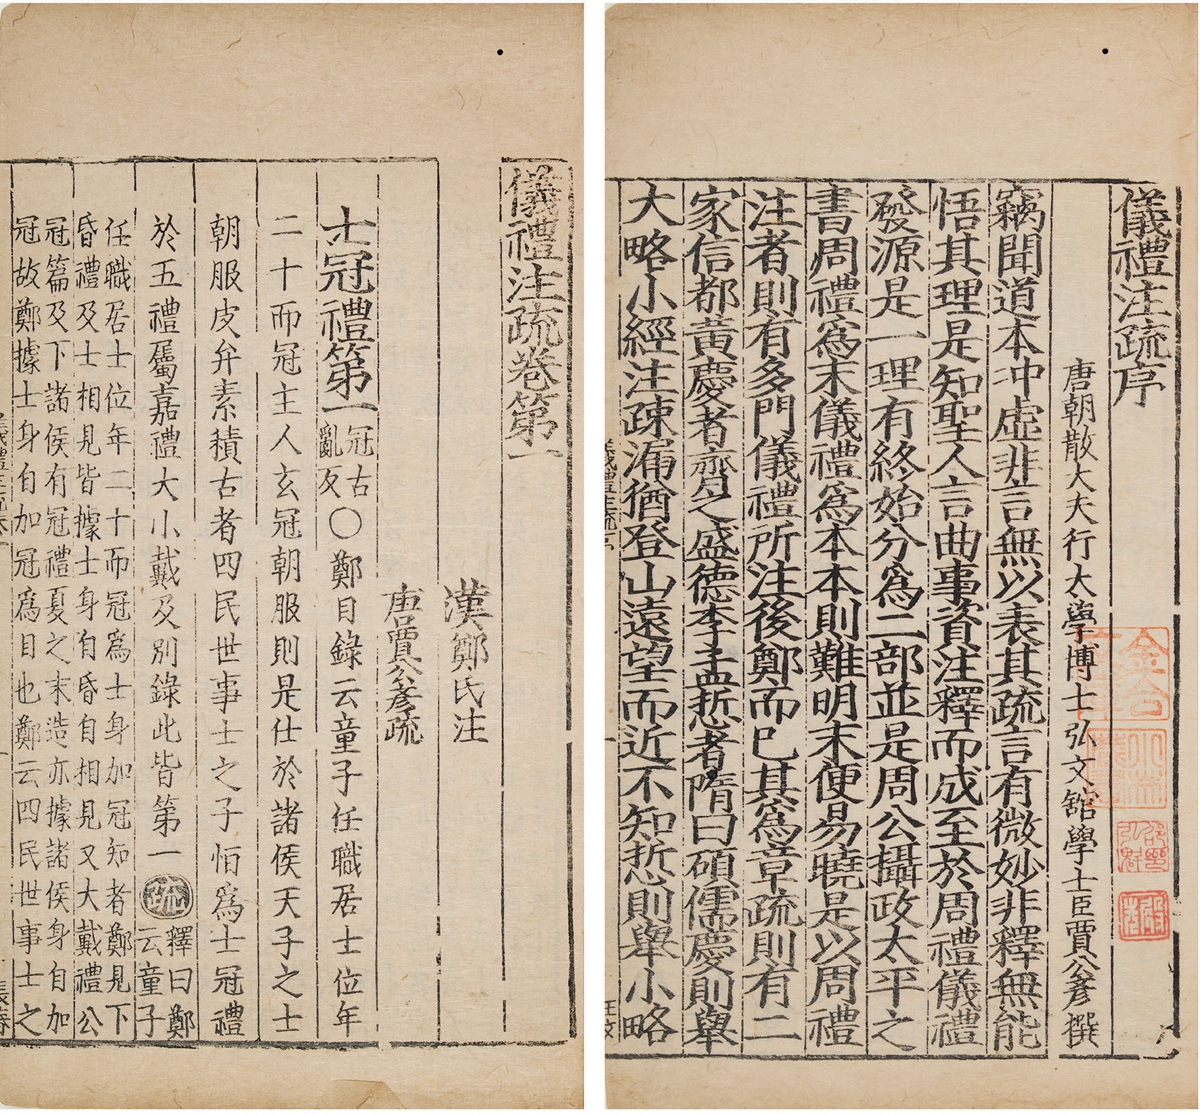 儀禮注疏序
唐朝散大夫行太學博士弘文館學士臣賈公彥撰
竊聞道本沖虛非言無以表其疏言有微妙非釋無能
悟其理是知聖人言曲事資注釋而成至於周禮儀禮
發源是一理有終始分爲二部並是周公攝政太平之
書周禮爲末儀禮爲本本則難明末便易曉是以周禮
注者則有多門儀禮所注後鄭而已其爲章疏則有二
家信都黃慶者齊之盛德李孟悊者隋曰碩儒慶則舉
大略小經注疎漏猶登山遠望而近不知悊則舉小略
儀禮注疏卷第一
漢鄭氏注
唐賈公彥疏
士冠禮第一冠古亂反〇鄭目錄云童子任職居士位年
二十而冠主人玄冠朝服則是仕於諸侯天子之士
朝服皮弁素積古者四民世事士之子恒爲士冠禮
於五禮屬嘉禮大小戴及別錄此皆第一疏釋曰鄭云童子
任職居士位年二十而冠爲士身加冠知者鄭見下
昏禮及士相見皆據士身自昏自相見又大戴禮公
冠篇及下諸侯有冠禮夏之末造亦據諸侯身自加
冠故鄭據士身自加冠爲目也鄭云四民世事士之